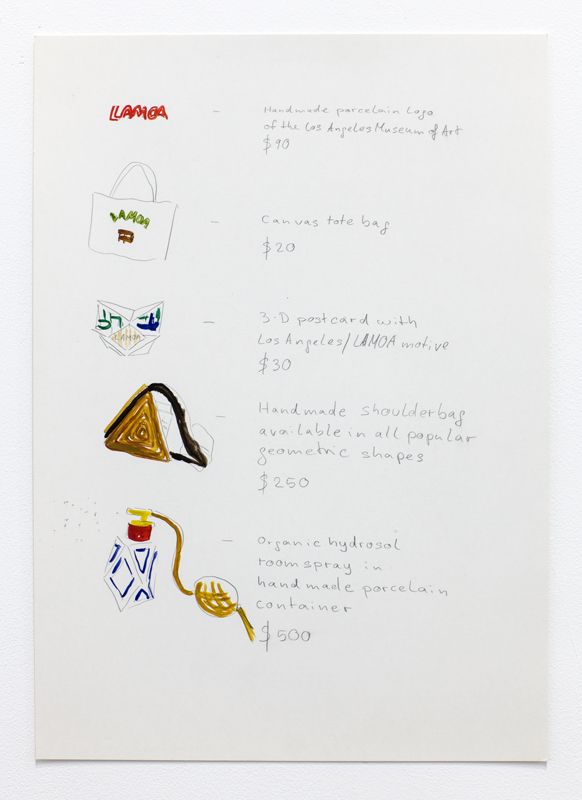 LAMOA
Handmade porcelain Logo
of the Los Angeles Museum of Art
$90
LAMOA
Canvas tote bag
$20
LAMOA
3-D postcard with
Los Angeles/LAMOA motive
$30
Handmade shoulderbag
available in all popular
geometric shapes
$250
Organic hydrosol
roomspray in
handmade porcelain
container
$500